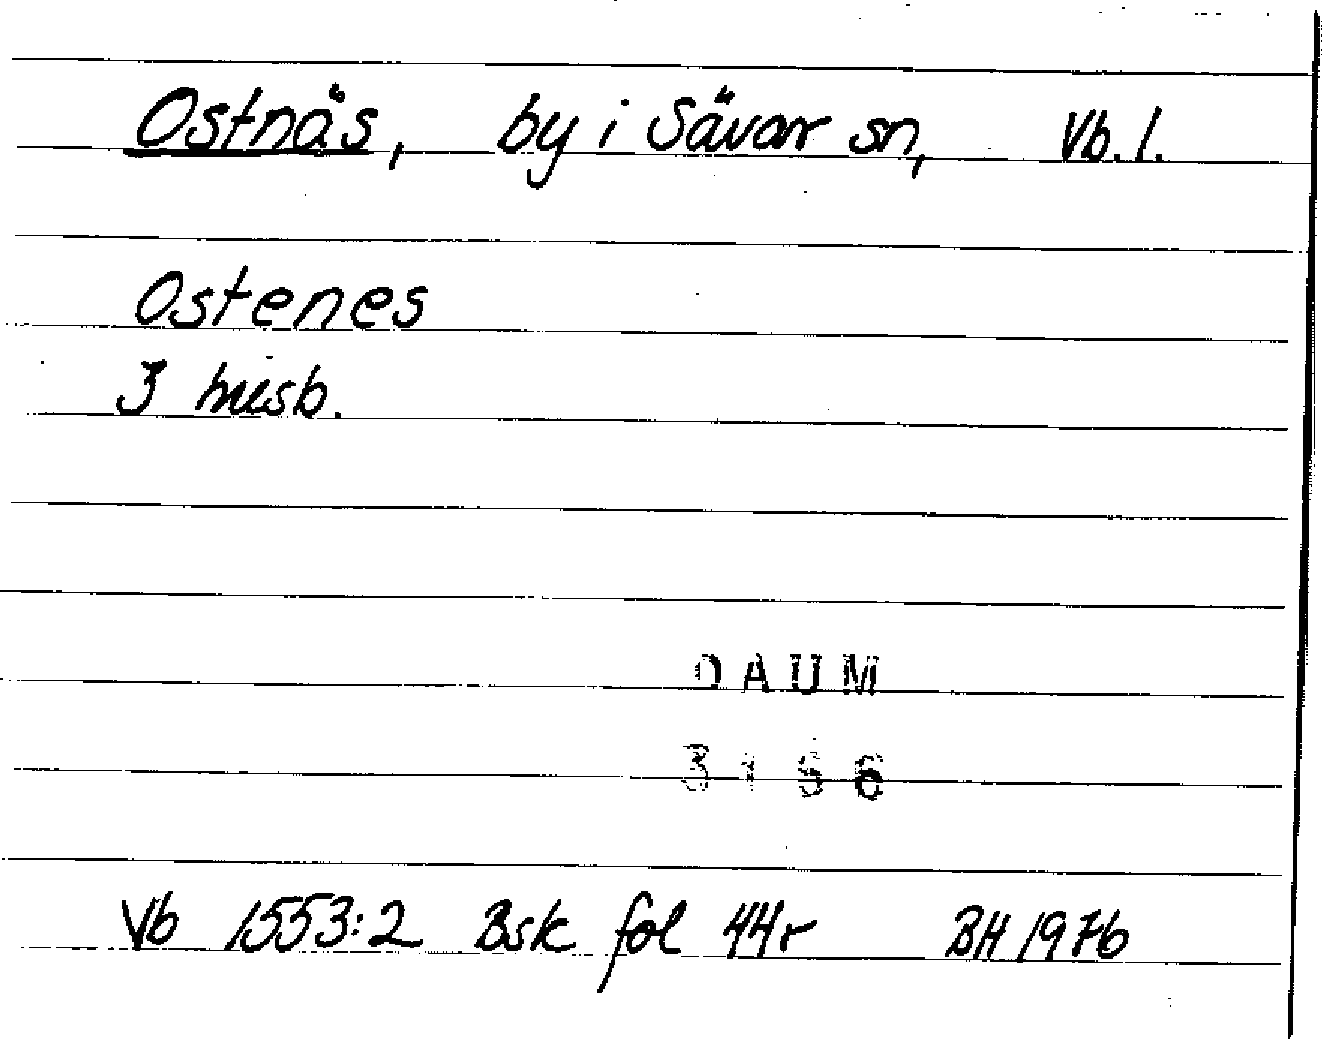 Ostnäs, by i Sävar sn, Vb. l.
Ostenes
3 husb.
DAUM
3156
Vb 1553:2 Bsk fol 44r BH 1976